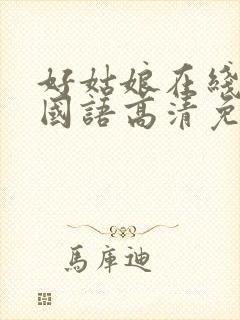 好姑娘在綫
國語高清免
馬庫迪